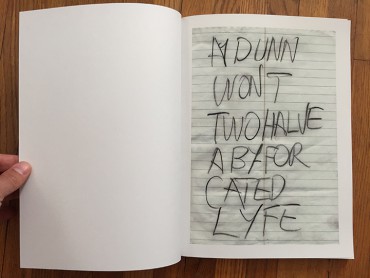 A DUNN
WON'T
TWO HALVE
A BY/FOR
CATED
LYFE